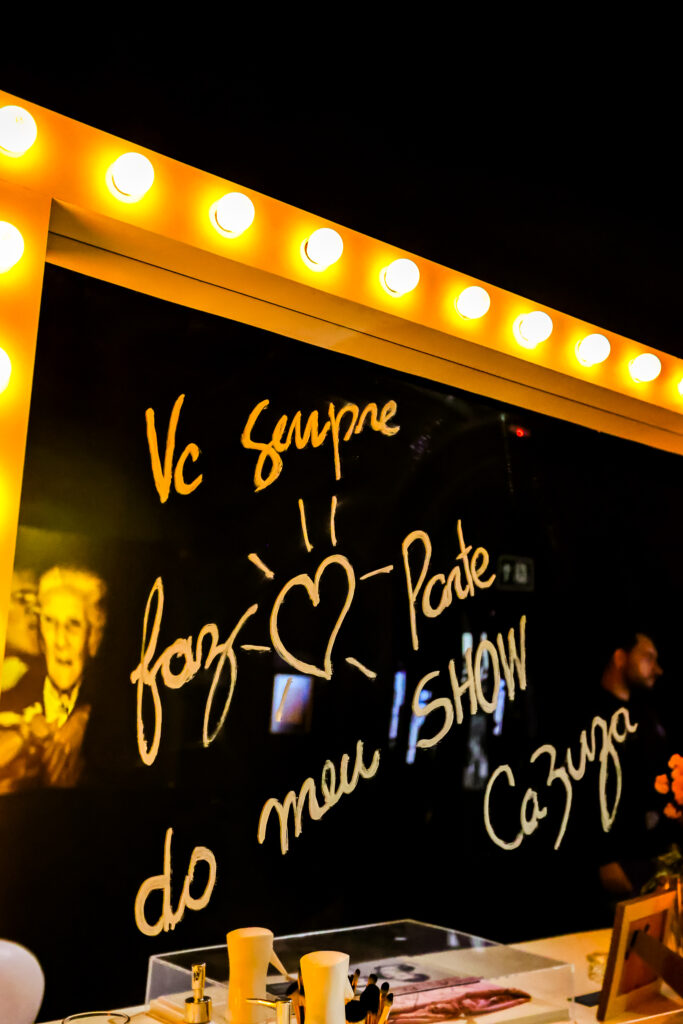 Vc sempre
faz Parte
do meu SHOW
Cazuza